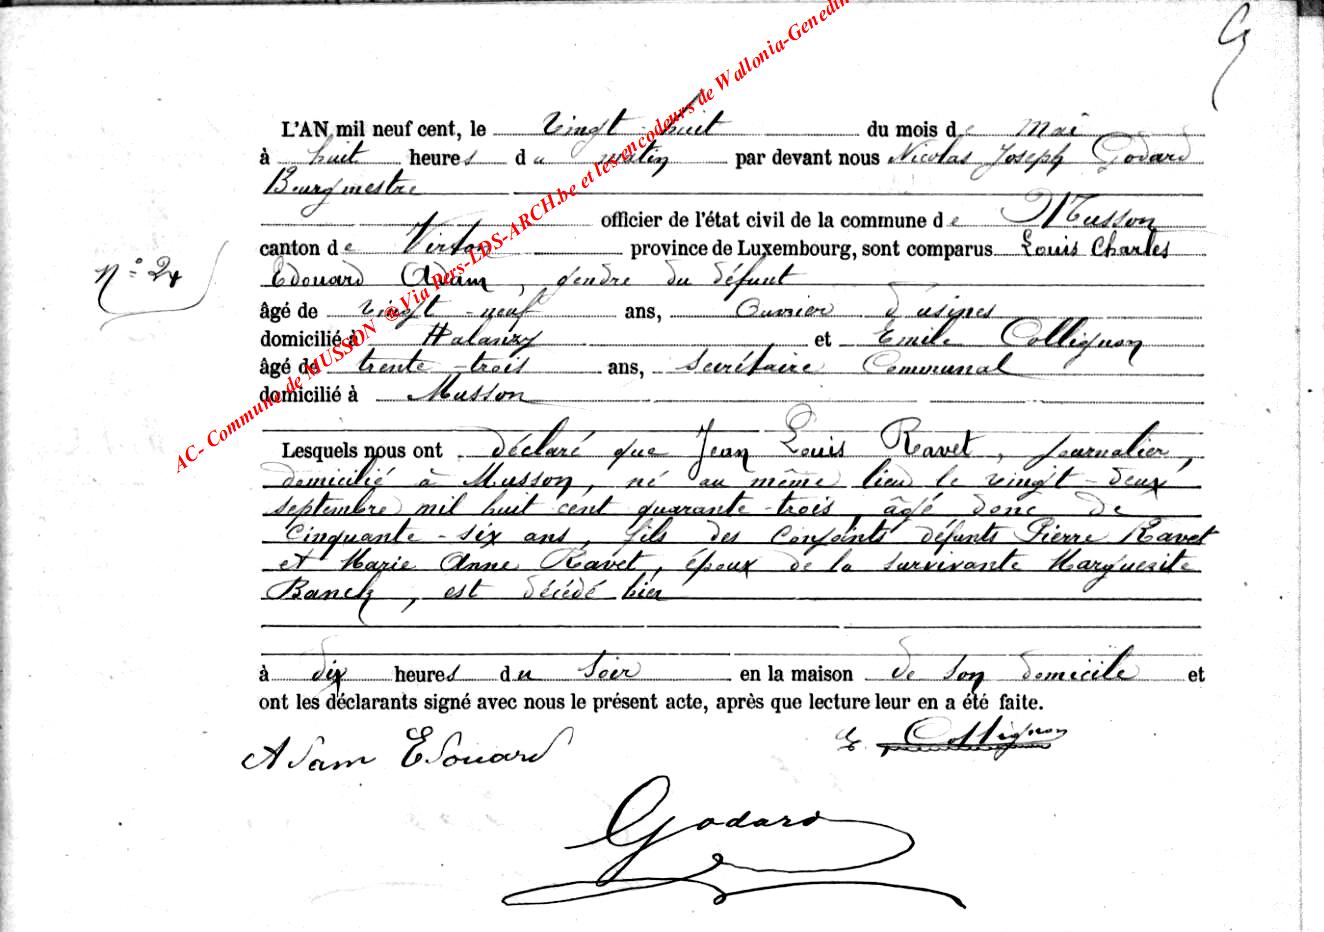 G
L'AN mil neuf cent, le vingt huit du mois de mai
à huit heures du matin par devant nous Nicolas Joseph Godard
Bourgmestre
officier de l'état civil de la commune de Musson
canton de Virton province de Luxembourg, sont comparus Louis Charles
Edouard Adam, gendre du défunt
n° 24
âgé de vingt-neuf ans, Ouvrier d'usines
domicilié à Halanzy et Emile Collignon
âgé de trente-trois ans, secrétaire Communal
domicilié à Musson
Lesquels nous ont déclaré que Jean Louis Ravet, journalier,
domicilié à Musson, né au même lieu le vingt-deux
septembre mil huit cent quarante-trois, âgé donc de
cinquante-six ans, fils des conjoints défunts Pierre Ravet
et Marie Anne Ravet, époux de la survivante Marguerite
Banck, est décédé hier
à dix heures du soir en la maison de son domicile et
ont les déclarants signé avec nous le présent acte, après que lecture leur en a été faite.
Adam Edouard E. Collignon
Godard
AC- Commune de MUSSON @Via Pers-LDS-ARCH.be et les encodeurs de Wallonia-Genedin